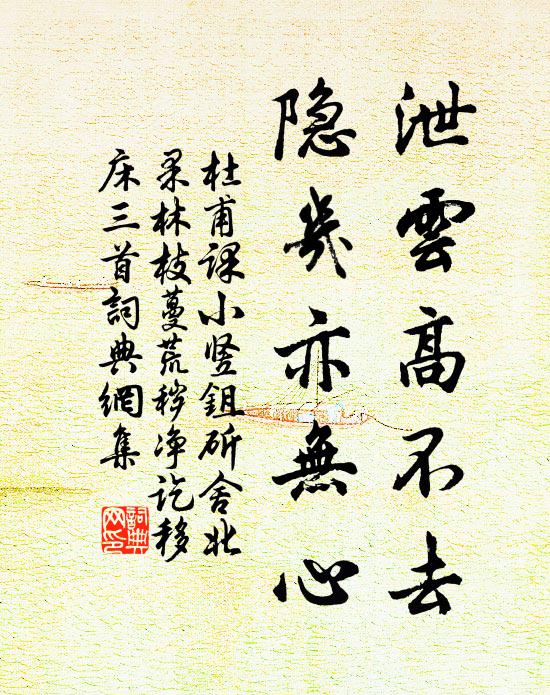 泄雲高不去
隐幾亦無心
杜甫課小豎鉏斫舍北
果林枝蔓荒穢净訖移
床三首詞典網集
詞典
网印